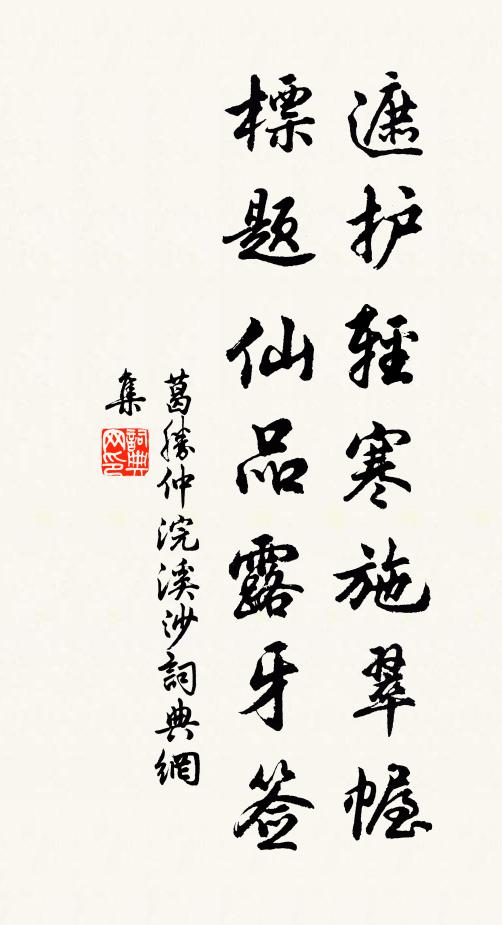 遮护輕寒施翠幄
標题仙品露牙签
葛勝仲浣溪沙詞典網
集
詞典网印